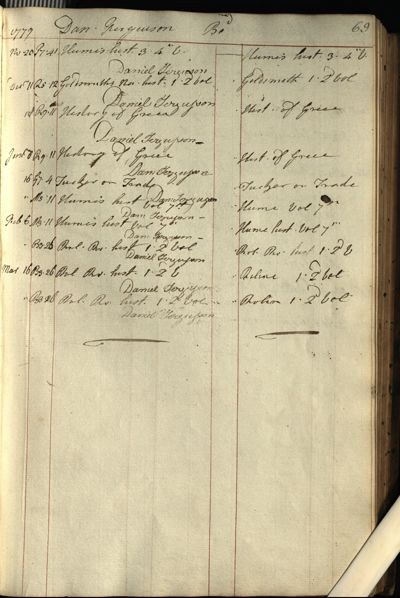 1779 Dan. Ferguson Bo.d 69
No 20 F7-11 Humes hist. 3-4 V. Humes hist. 3-4 V.
Daniel Ferguson
Goldsmiths Ro. hist. 1-2d Vol Goldsmith 1-2 Vol
Daniel Ferguson
History of Greece Hist. of Greece
Daniel Ferguson
Janr. 11 History of Greece Hist. of Greece
Dan Ferguson
16 F7-4 Tucker on Trade Tucker on Trade
Dan Ferguson
11 Humes hist Vol 7th Hume Vol 7th
Dan Ferguson
Feb 6 11 Humes hist Vol Hume hist Vol 7th
Dan Ferguson
B3-26 Rol. Ro. hist 1-2d Vol Rol Ro hist 1-2d V
Daniel Ferguson
Mar 16 B3-26 Rol Ro. hist. 1-2d V Roline 1-2d Vol
Daniel Ferguson
B3 26 Rol Ro. hist. 1-2d Vol Rolin 1-2d Vol
Daniel Ferguson